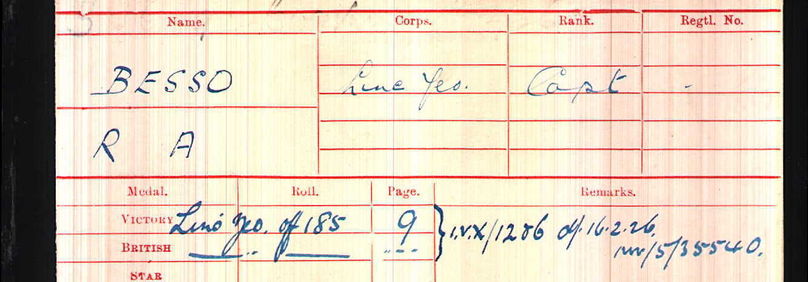 Name. Corps. Rank. Regtl. No.
BESSO Linc Yeo. Capt -
R A
Medal. Roll. Page. Remarks.
VICTORY Linc Yeo. Off 185 9 } I.V.X/1206 d/. 16.2.26.
BRITISH —„— „ NW/5/35540.
STAR